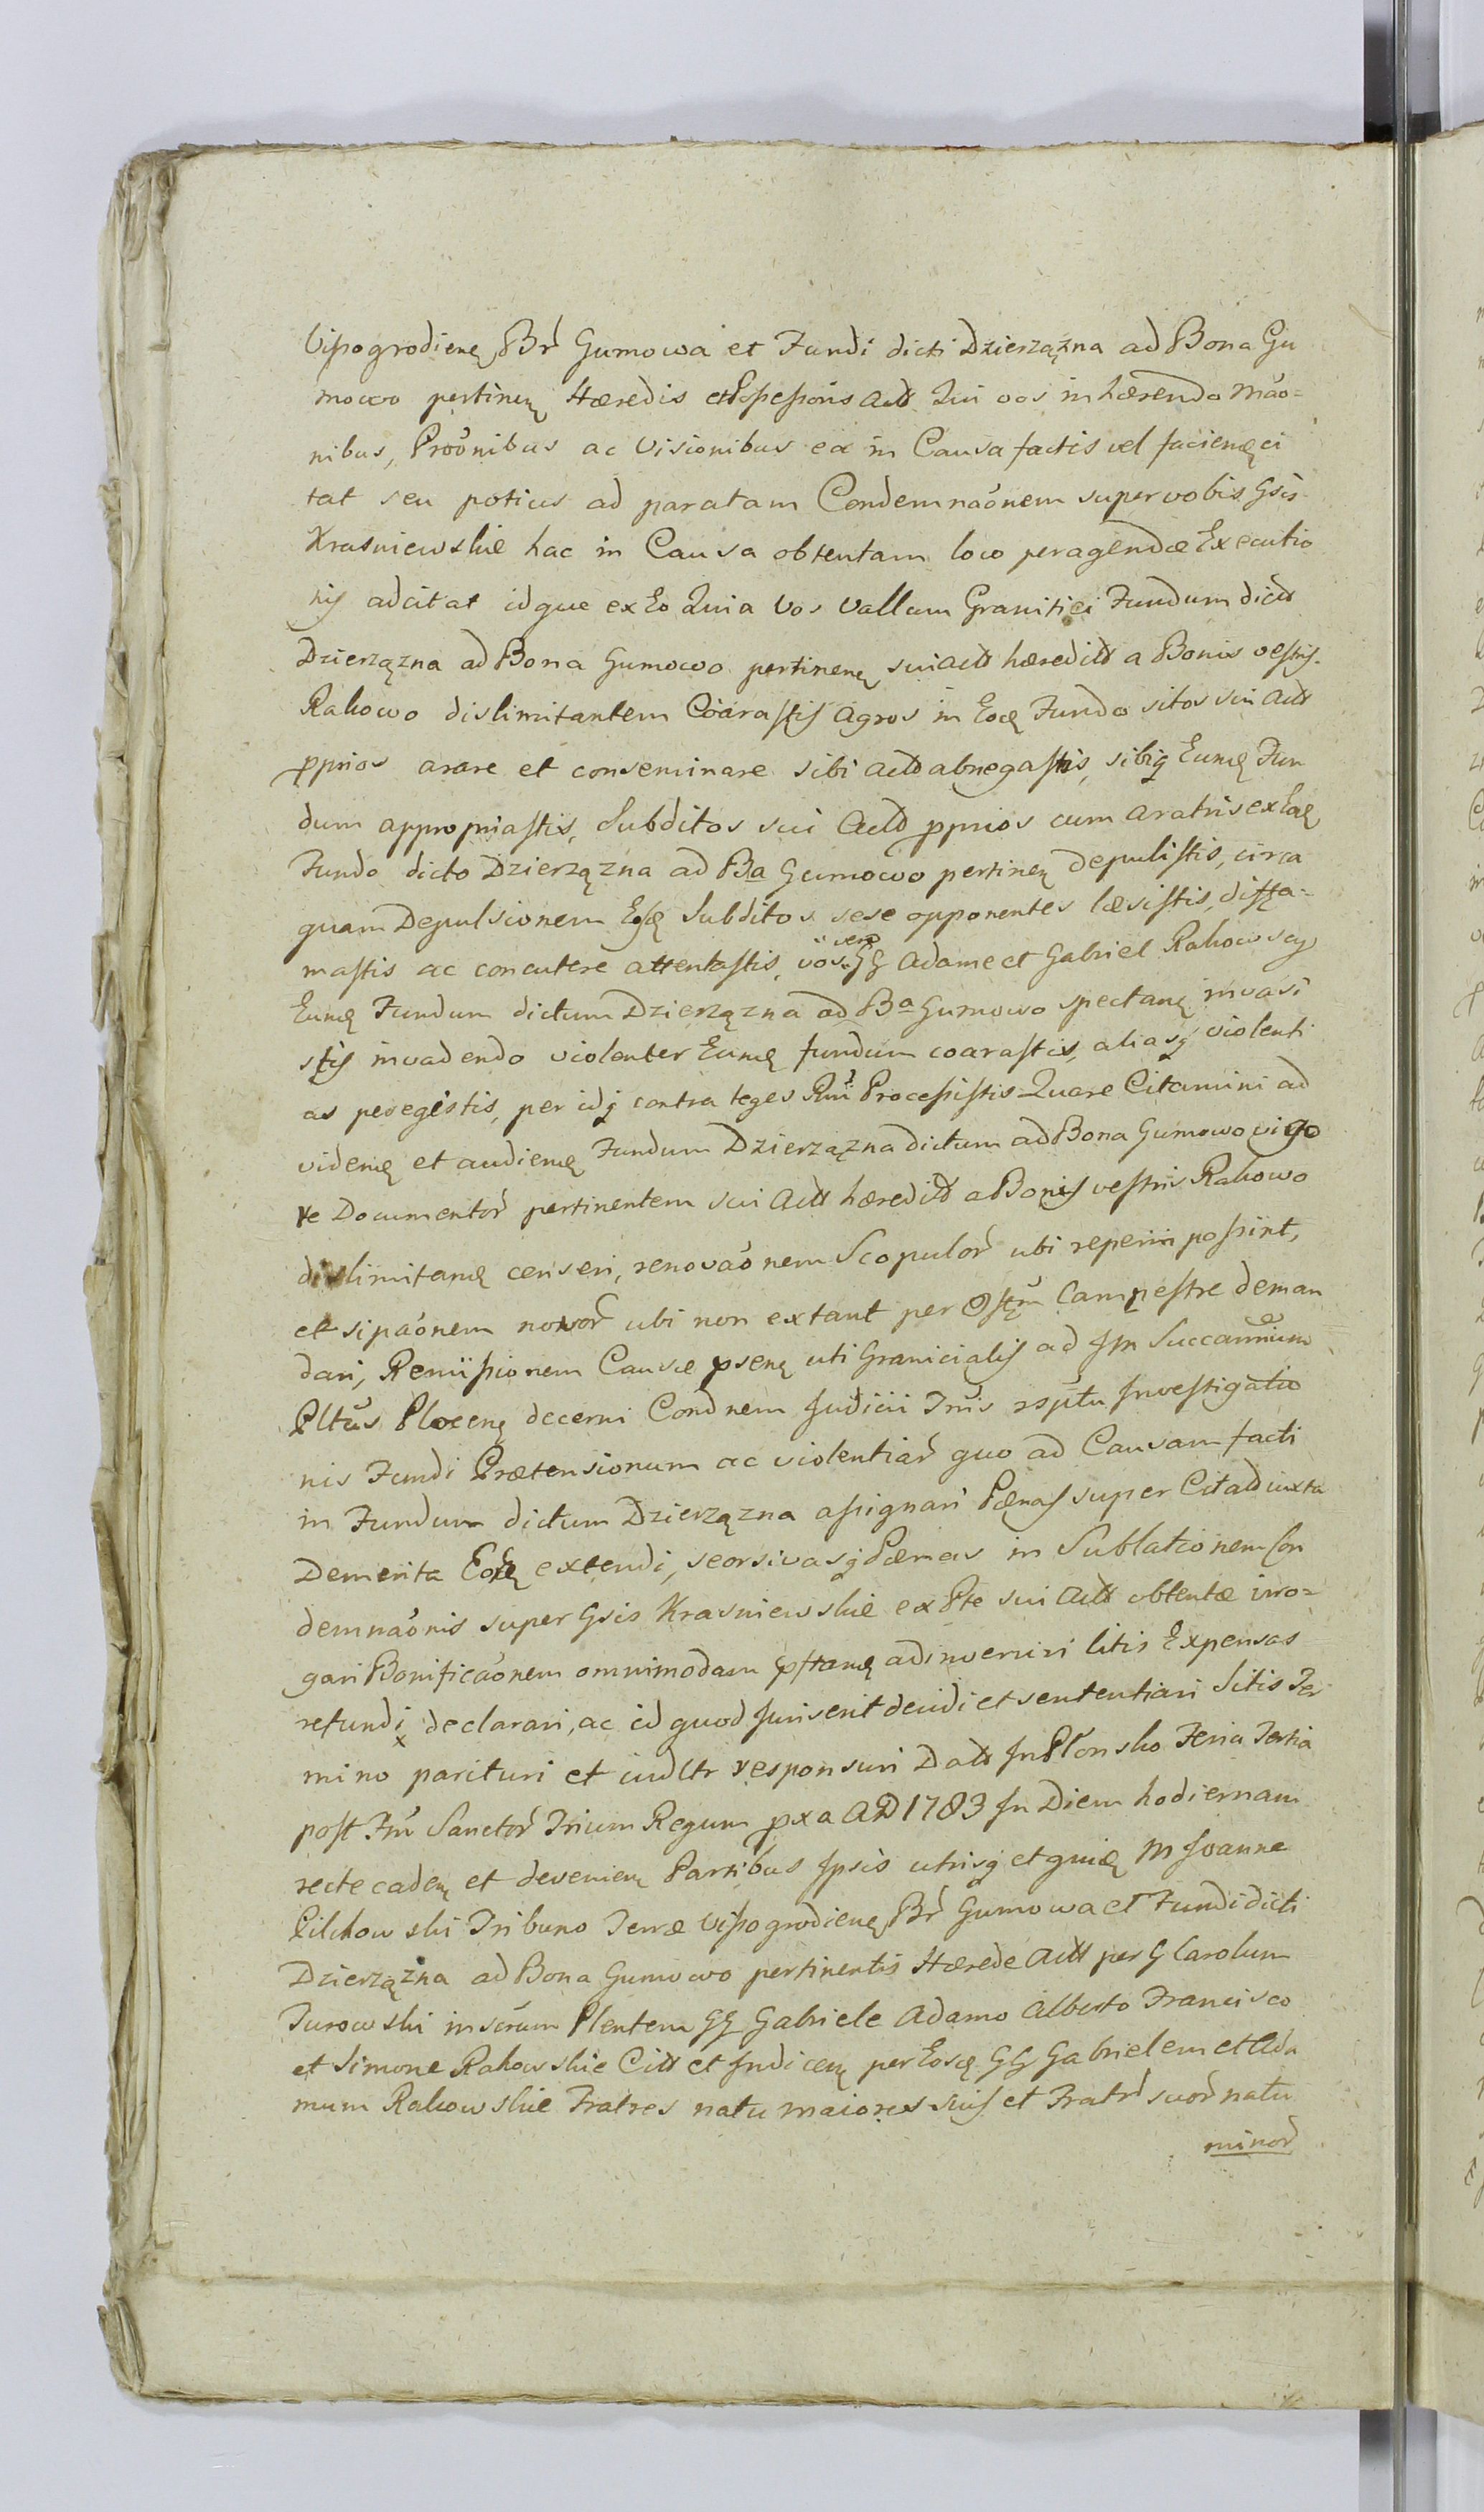 Vissogrodienẹ Br̃ Gumowa et Fundi dicti Dzierzązna ad Bona Gu
mowo pertineṇ Hæredis et Possessoris Actt Qui vos inhærendo Mãõ=
nibus, Proõnibus ac Visionibus ex in Causa factis vel facienẹ ci
tat seu potius ad paratam Condemnaõnem super vobis Gsis
Krasniewskie hac in Causa obtentam loco peragendæ Executio
nis adcitat idque ex Eo Quia Vos Vallum Graniti ei Fundum dictt
Dzierzązna ad Bona Gumowo pertinenẹ sui Actt hæreditt a Bonis vestris
Rakowo dislimitantem Coarastis Agros in Eodẹ Fundo sitos sui Actt
pprios arare et conseminare sibi Actt abnegastis, sibiq Eundẹ Fun
dum appropriastis, Subditos sui Actt pprios cum aratris ex Eodẹ
Fundo dicto Dzierzązna ad Ba Gumowo pertinẹ depulistis, circa
quam Depulsionem Eosdẹ Subditos sese opponentes læsistis, diffa=
mastis ac concutere attentastis, vos vero GG Adame et Gabriel Rakowscy
Eundẹ Fundum dictum Dzierzązna ad Ba Gumowo spectanẹ invasi
stis invadendo violenter Eundẹ fundum coarastis, aliasq violenti
as peregistis, per idq contra leges Rni Processistis Quare Citamini ad
videndẹ et audiendẹ Fundum Dzierzązna dictum ad Bona Gumowo vigo
re Documentor̃ pertinentem sui Actt hæreditt a Bonis vestris Rakowo
dislimitandẹ censeri, renovaõnem Scopulor̃ ubi reperiri possint,
et sipaõnem novor̃ ubi non extant per Offm̃ Campestre deman
dari, Remissionem Causæ psenẹ uti Granicialis ad Jn Succamm̃um
Pltũs Plocenẹ decerni Condnem Judicii Tnĩs rsptu Investigatio
nis Fundi Prætensionum ac violentiar̃ quo ad Causam facti
in Fundum dictum Dzierzązna assignari Pænas super Citatt iuxta
Demerita Eorẹ extendi, seorsivasq Pænas in Sublationem Con
demnaõnis super Gsis Krasniewskie ex Pte sui Actt obtentæ irro=
gari Bonificaõnem omnimodam pstandẹ adinveniri litis Expensas
refundi declarari, ac id quod Juris erit decidi et sententiari Sitis Ter
mino parituri et iudltr responsuri Datt Jn Płonsko Feria Tertia
post Fm̃ Sanctor̃ Trium Regum pxa AD 1783 Jn Diem hodiernam
recte cadenẹ et devenienẹ Partibus Ipsis utrisq et quidẹ M Joanne
Pilchowski Tribuno Terræ Vissogrodienẹ Br̃ Gumowa et Fundi dicti
Dzierzązna ad Bona Gumowo pertinentis Hærede Actt per G Carolum
Turowski inscrum Plentem GG Gabriele Adamo Alberto Francisco
et Simone Rakowskie Citt et Judicenẹ per Eosdẹ GG Gabrielem et Ada
mum Rakowskie Fratres natu maiores suis et Fratr̃ suor̃ natu
minor̃